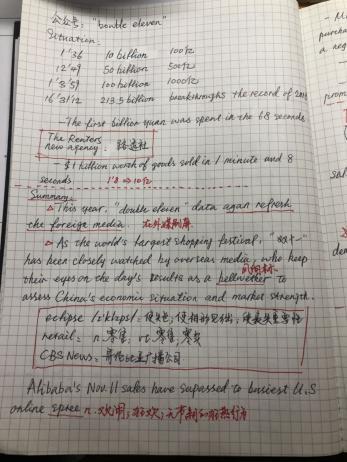 公众号: "double eleven"
Situation:
1'36 10 billion 100亿
12'49 50 billion 500亿
1°3'59 100 billion 1000亿
16°31'12 213.5 billion breakthroughs the record of
— The first billion yuan was spent in the 68 seconds
The Reuters
news agency: 路透社
— $1 billion worth of goods sold in 1 minute and 8
seconds 1'8 ⇒ 10亿
Summary:
△ This year, "double eleven" data again refresh
the foreign media. 在外媒刷屏
△ As the world's largest shopping festival, "双十一"
has been closely watched by overseas media, who keep
风向标
their eyes on the day's results as a bellwether to
assess China's economic situation and market strength.
eclipse /ɪ'klɪps/: 使失色;
retail: n. 零售; vt. 零售;
CBS News: 哥伦比亚广播公司
Alibaba's Nov.11 sales have supassed to busiest U.S
online spree n. 欢闹; 狂欢;